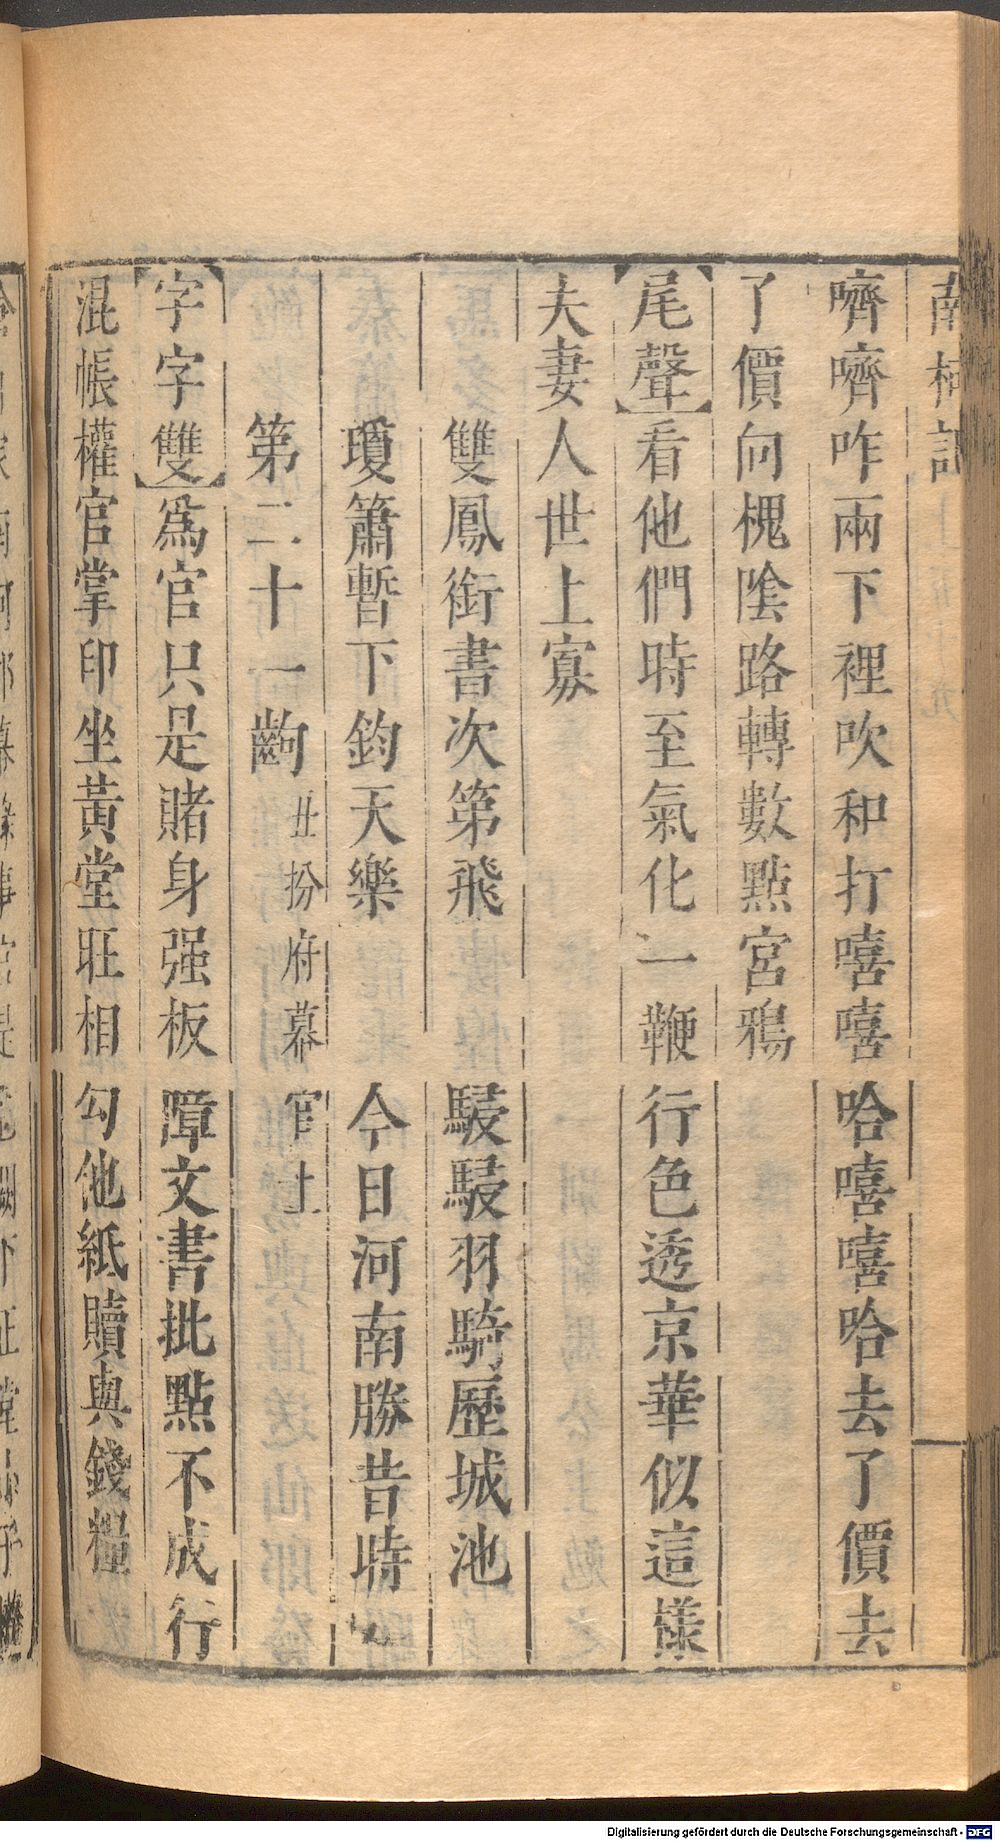 南柯記
嚌嚌咋兩下裡吹和打嘻嘻哈嘻嘻哈去了價去
了價向槐陰路轉數點宮鴉
【尾聲】看他們時至氣化一鞭行色透京華似這樣
夫妻人世上寡
雙鳳銜書次第飛 駸駸羽騎歷城池
瓊簫暫下鈞天樂 今日河南勝昔時
第二十一齣 丑扮府幕官上
【字字雙】爲官只是賭身强板障文書批點不成行
混帳權官掌印坐黃堂旺相勾他紙贖與錢糧
Digitalisierung gefördert durch die Deutsche Forschungsgemeinschaft - DFG